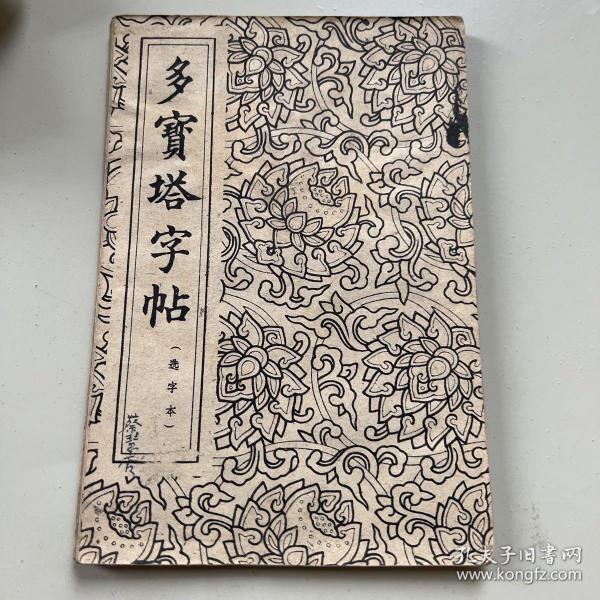 多寶塔字帖
（选字本）
孔夫子旧书网
www.kongfz.com